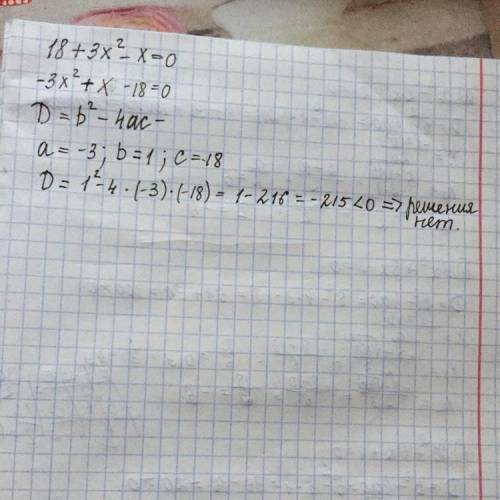 18+3x²-x=0
-3x²+x-18=0
D=b²-4ac-
a=-3; b=1; c=-18
D= 1²-4·(-3)·(-18)=1-216=-215<0=> решения
нет.